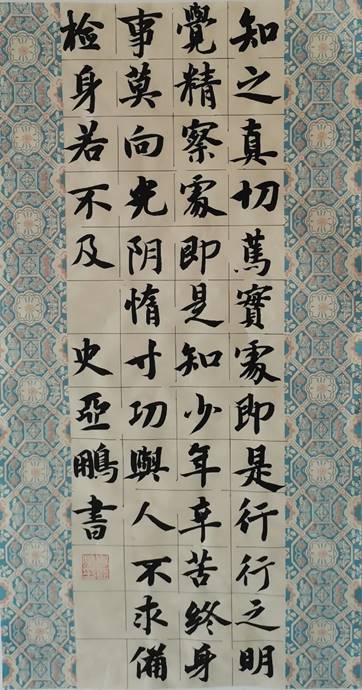 知之真切篤實處即是行行之明
覺精察處即是知少年辛苦終身
事莫向光阴惰寸功與人不求備
检身若不及 史亞鵬書